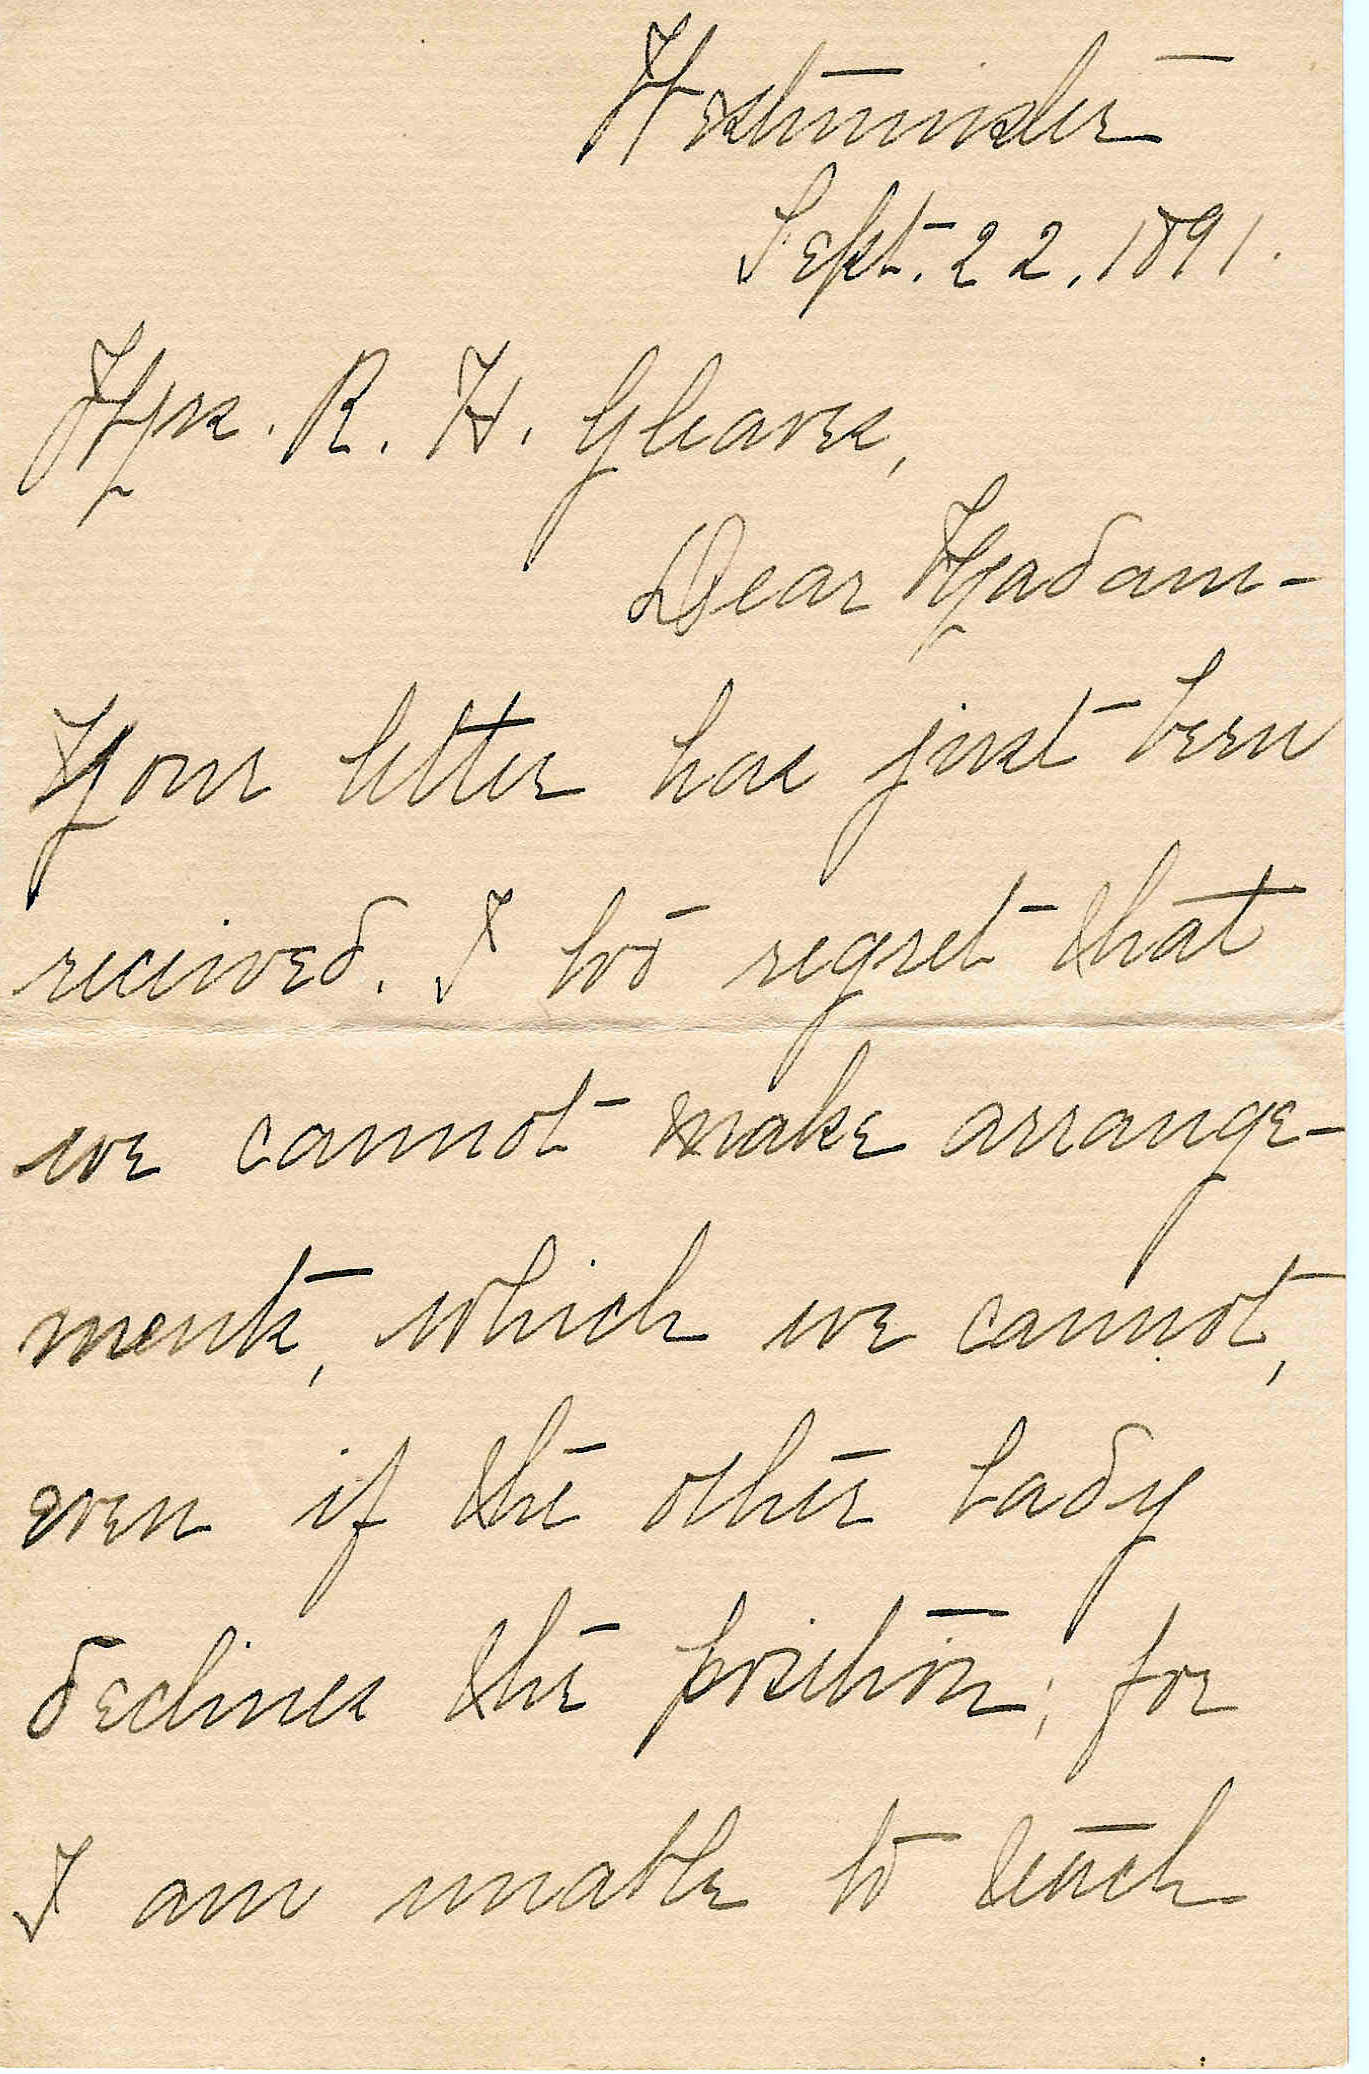 Westminster
Sept. 22, 1891.
Mrs. R. H. Gleaves,
Dear Madam-
Your letter has just been
received. I too regret that
we cannot make arrange-
ments, which we cannot,
even if the other lady
declines the position; for
I am unable to teach